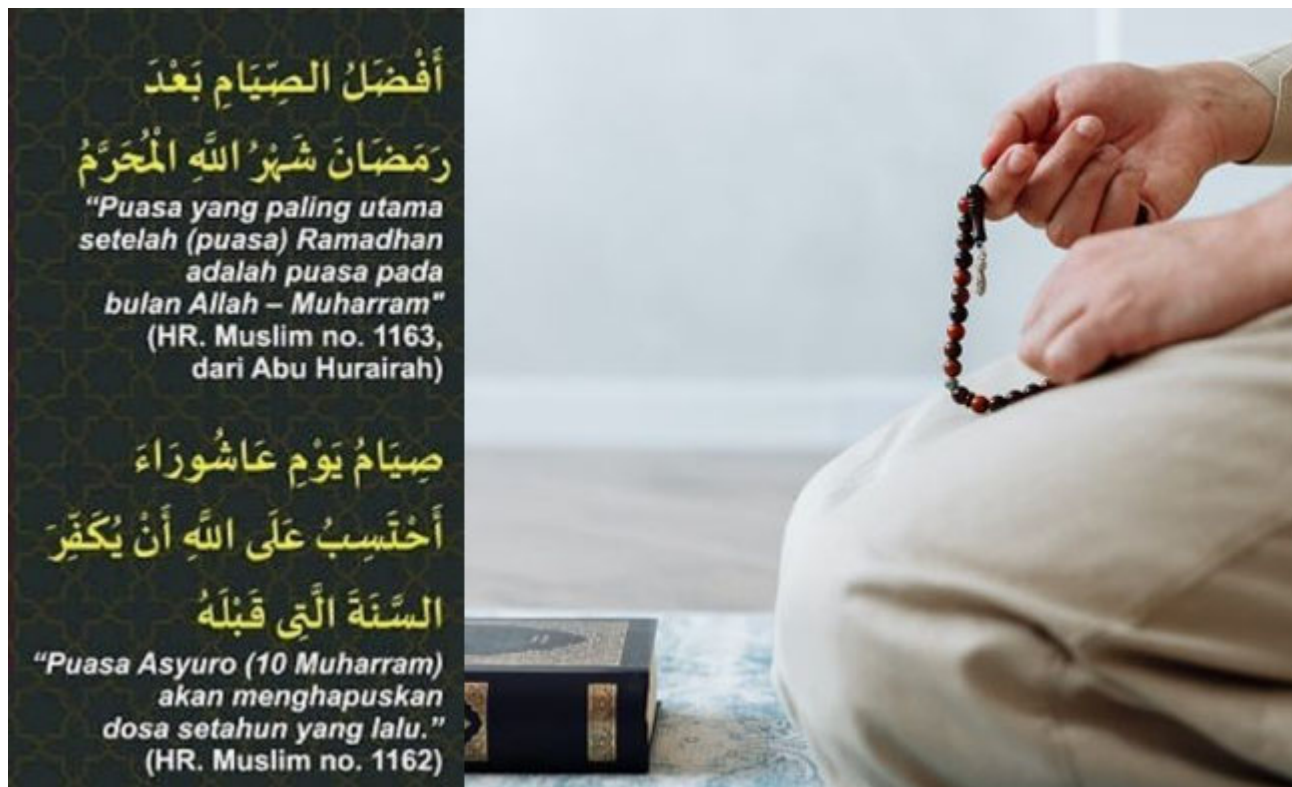 أَفْضَلُ الصِّيَامِ بَعْدَ
رَمَضَانَ شَهْرُ اللَّهِ الْمُحَرَّمُ
“Puasa yang paling utama
setelah (puasa) Ramadhan
adalah puasa pada
bulan Allah – Muharram"
(HR. Muslim no. 1163,
dari Abu Hurairah)
صِيَامُ يَوْمِ عَاشُورَاءَ
أَحْتَسِبُ عَلَى اللَّهِ أَنْ يُكَفِّرَ
السَّنَةَ الَّتِى قَبْلَهُ
“Puasa Asyuro (10 Muharram)
akan menghapuskan
dosa setahun yang lalu.”
(HR. Muslim no. 1162)